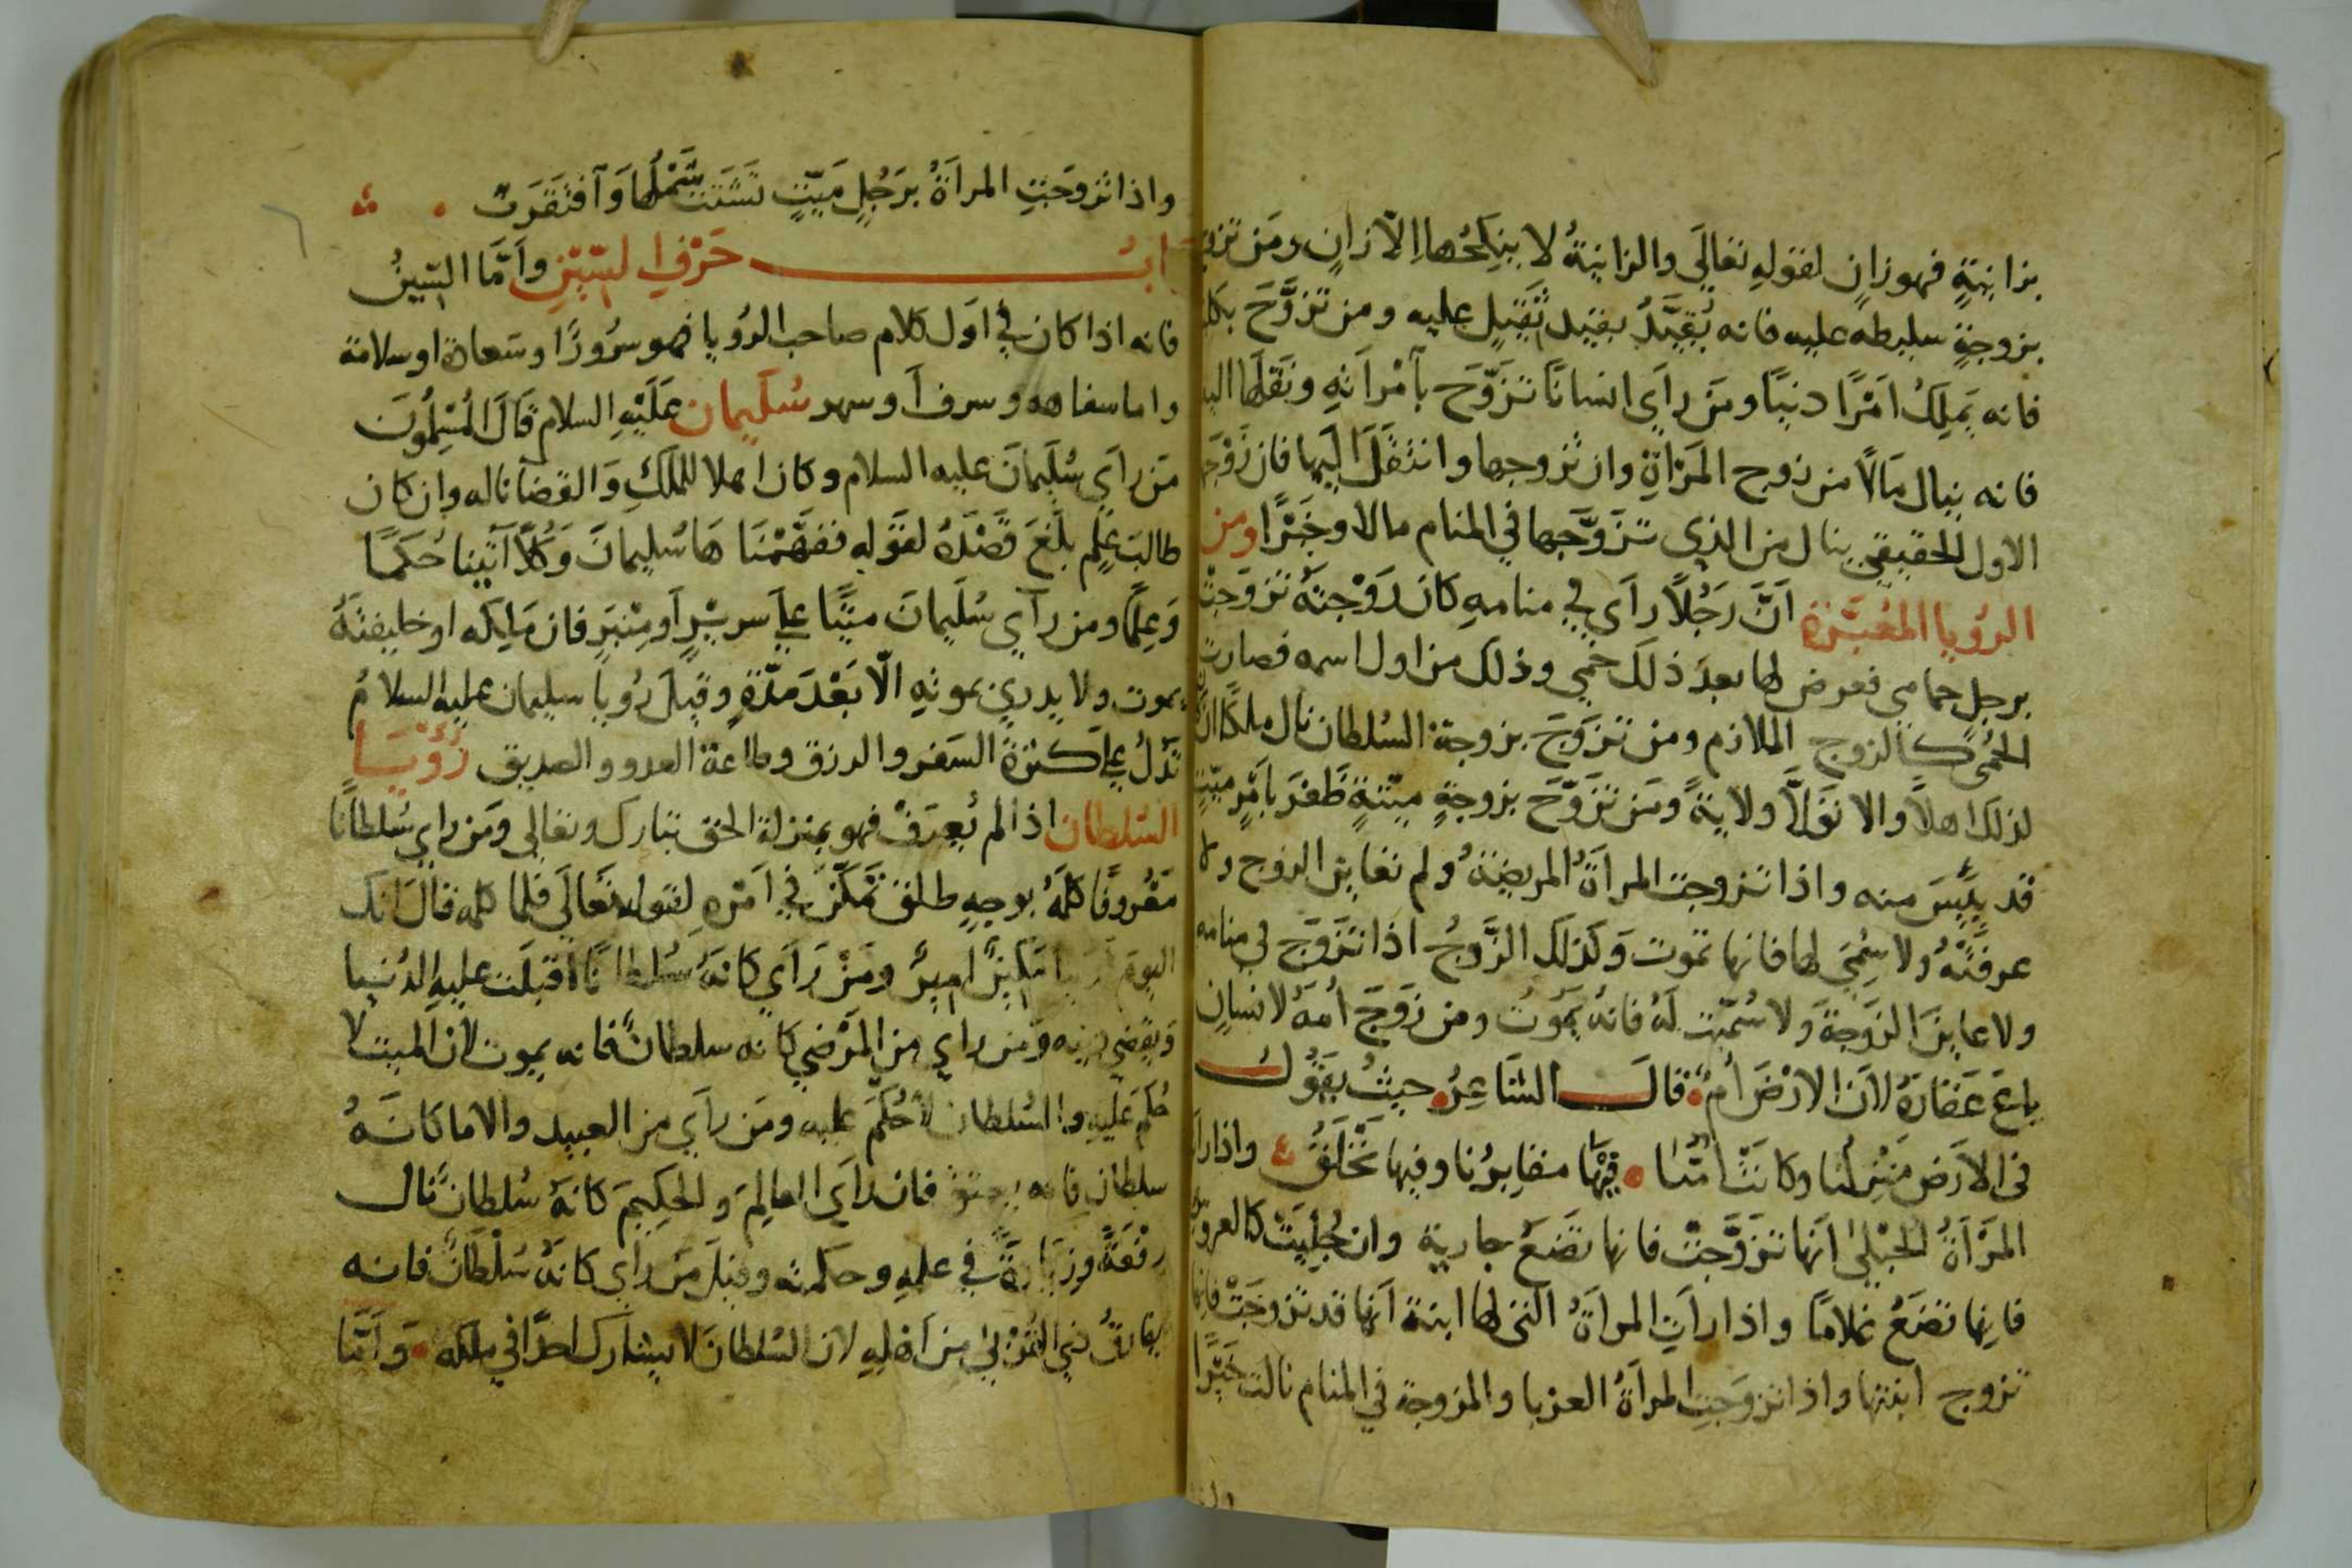 بزانيةٍ فهو زانٍ لقوله تعالَي والزانيةُ لا ينكحُها الّا زانٍ ومَن تزوج
بزوجةٍ سليطه عليه فانه يُقيَّدُ بقيد ثَقيلٍ عليه ومن تزوَّجَ
فانه يَملِكُ امْرًا دنيًا ومَن رأي انسانًا تزَوّجَ بآمْرأتهِ ونَقلَها
فانه ينال مَالًا من زوج المَرْاةِ وان تزوجها وانتقَلَ اليها فان زَوْجَها
الاول الحقيقي ينال من الذي تزَوَّجها في المنام مالا وخَيْرًا ومن
الرُؤيا المُعَبَّرة اَنَّ رَجُلًا رأي في منامهِ كان زَوْجتَهُ تزوَجتْ
برجلٍ حمامي فعرض لها بعدَ ذلك حُمي وذلك من اول اسمه فصارت
الحُمّي كالزوج الملازم ومن تزَوَجَ بزوجة السُلطان نال ملكًا ان كان
لذلك اهلًا والا تَوَلّا ولايةً ومَن تزَوّجَ بزوجةٍ ميّتةٍ ظَفرَ بأمْرٍ ميّتٍ
قد يئِسَ منه واذا تزوجت المرأةُ المريضةُ ولم تعاين الزوج ولا
عرفَتْهُ ولا سُمِّيَ لها فانها تموت وَكذلك الزَّوجُ اذا تزَوَّج في منامه
ولا عاين الزَوجةَ ولا سُمّيَت لَهُ فانهُ يَموُت ومن زَوَّجَ اُمّهُ لانسانٍ
باع عَقارَهُ لأن الارْضَ أُمٌ قالَ الشاعِرُ حيثُ يقَوُل
في الاَرض مَنْزِلُنا وكانَتْ اُمَّنا فِيْها مقابرُنا وفيها نُخْلَقُ واذا رأت
المَرْاةُ الحُبْلي انَها تزوَّجتْ فانها تضَعُ جارية وان جُلِيَتْ كالعروس
فانها تضَعُ غلامًا واذا رأتِ المرأةُ التي لها ابنة اَنها قد تزوجَتْ فانها
تزوج ابنتها واذا تزوَجتِ المرأةُ العزبا والمزوجة في المنام نالت خَيْرًا
واذا تزوجَتِ المرأةُ برَجُلٍ مَيّتٍ تَشَتت شَمْلُها وَآفتقَرَت
باب حَرْفِ السّيْنِ وأمّا السّينُ
فانه اذا كان في اوَل كلام صاحب الرُؤيا فهو سُرُورًا وسَعادة او سلامة
سُلَيمان عَلَيْهِ السلام قَالَ المُسْلِمُونَ
مَن رأي سُلَيمانَ عليه السلام وكان اهلا للملكِ وَالقضآ ناله وان كان
طالبَ عِلمٍ بلَغَ قَصْدَهُ لقَوْلهِ ففَهّمْنَا هَا سُليمانَ وَكُلًّا آتينا حُكمًا
وَعِلمًا ومن رأي سُلَيمانَ ميّتًا علي سرِيْرٍ اَو مِنْبَرٍ فان مَلِكَه او خليفتَهُ
يموت ولا يدري بموتهِ الّا بَعْدَ مدّةٍ وقيلَ رُؤيا سليمان عليه السلامُ
تَدلُ علي كثرَة السَفر والرزق وطاعة العدو والصديق رُؤيَا
السُلطان اذا لم يُعرَفْ فهو بمنزلة الحق تبارك وتعالي ومَن رأي سُلطانًا
مَعْرُوفًا كلّمَهُ بوجهٍ طلقٍ تَمكّنَ في اَمْرهِ لقوله تعَالَي فلما كلمه قالَ انكَ
اليوم لدينا مَكينٌ امينٌ ومَنْ رَاَي كانهُ سُلطانًا اقبلَت عليهِ الدُنيا
وَيقضي دينه وَمَن راي من المَرْضي كانه سلطانٌ فانه يموت لأن الميت لا
حُكمَ عَلَيهِ والسُلطان لأ حُكْمَ عليه ومَن رأي من العبيد والاما كانَهُ
سلطان فانه يعتق فان رأي العالِمَ والحكيمَ كانهُ سُلطانٌ نال
رفعَةً وزيَادةً في علمهِ وحكمته وقيلَ مَن رأي كانهُ سُلْطانٌ فانه
يفارقُ من اَهْلهِ لان السُلطانَ لا يشارك احدًا في ملكه وَاَمّا